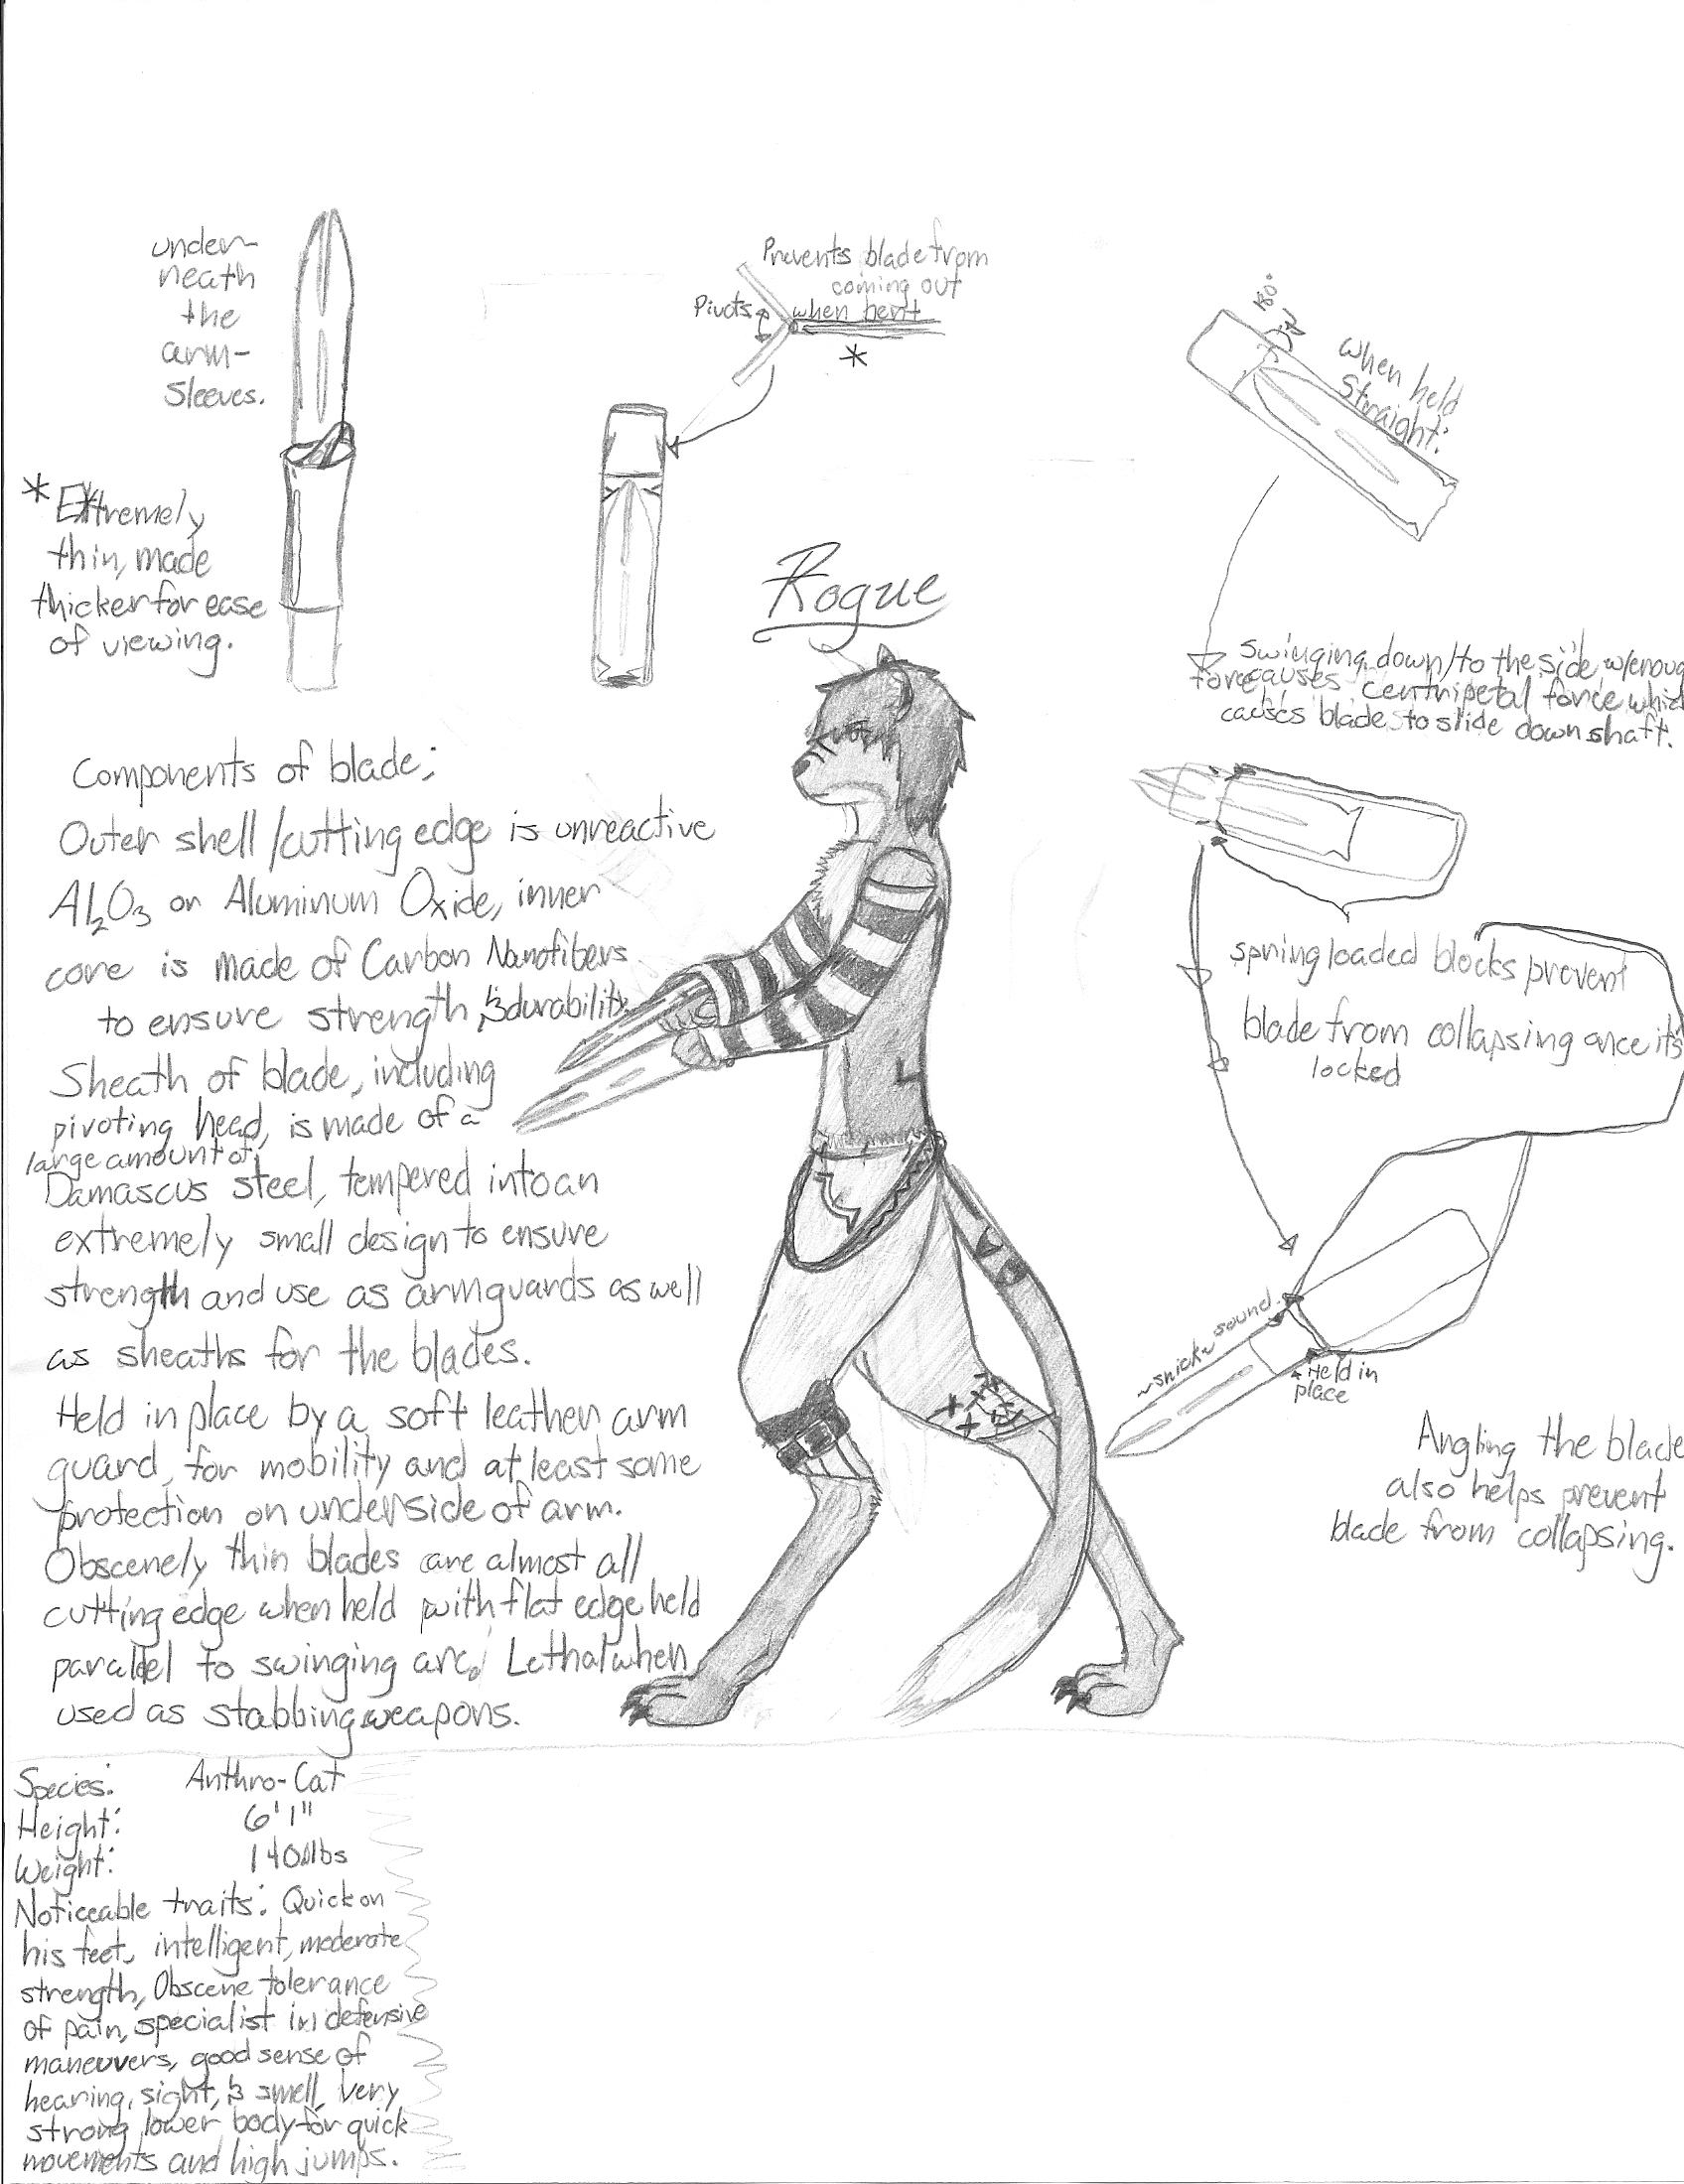 under-
neath
the
arm-
sleeves.
* Extremely
thin, made
thicker for ease
of viewing.
Prevents blade from
coming out
when bent
Pivots
*
180°
when held
Straight:
Rogue
swinging down/to the side w/enoug
force causes centripetal force whic
causes blade to slide down shaft.
spring loaded blocks prevent
blade from collapsing once it's
locked
~snick~ sound.
Held in
place
Angling the blade
also helps prevent
blade from collapsing.
Components of blade;
Outer shell/cutting edge is unreactive
Al₂O₃ or Aluminum Oxide, inner
core is made of Carbon Nanofibers
to ensure strength & durability.
Sheath of blade, including
pivoting head, is made of a
large amount of
Damascus steel, tempered into an
extremely small design to ensure
strength and use as armguards as well
as sheaths for the blades.
Held in place by a soft leather arm
guard, for mobility and at least some
protection on underside of arm.
Obscenely thin blades are almost all
cutting edge when held with flat edge held
parallel to swinging arc. Lethal when
used as stabbing weapons.
Species: Anthro-Cat
Height: 6'1"
Weight: 140lbs
Noticeable traits: Quick on
his feet, intelligent, moderate
strength, Obscene tolerance
of pain, specialist in defensive
maneuvers, good sense of
hearing, sight, & smell, very
strong lower body for quick
movements and high jumps.